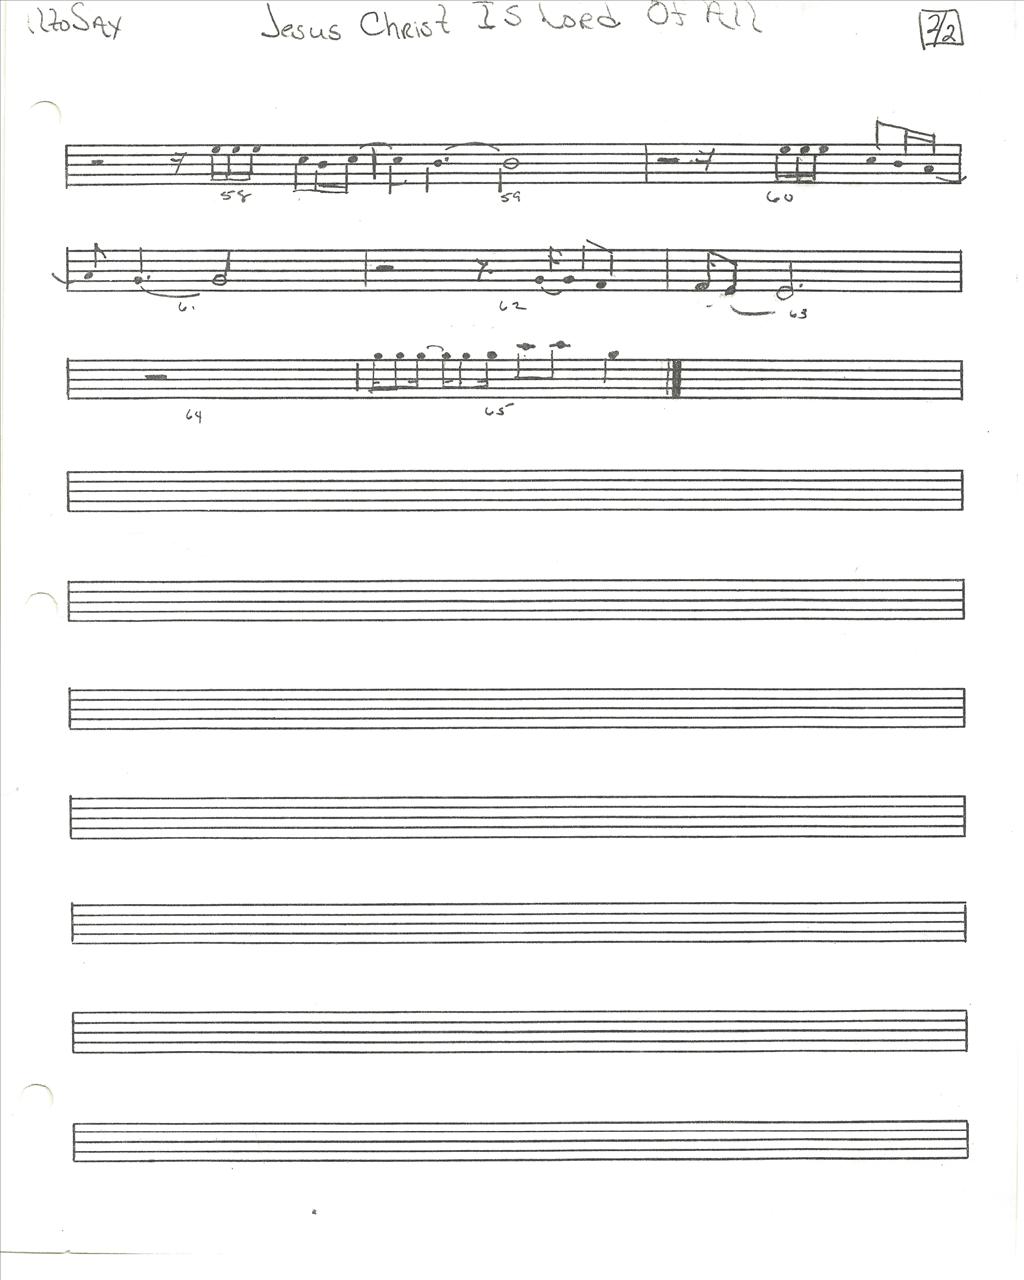 AltoSax Jesus Christ Is Lord Of All 2/2
58 59 60
61 62 63
64 65